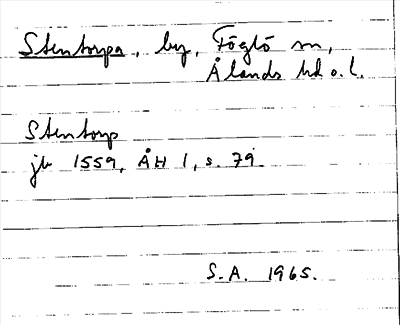 Stentorpa, by, Föglö sn,
Ålands hd o. l.
Stentorp
jb 1559, ÅH 1, s. 79
S.A. 1965.